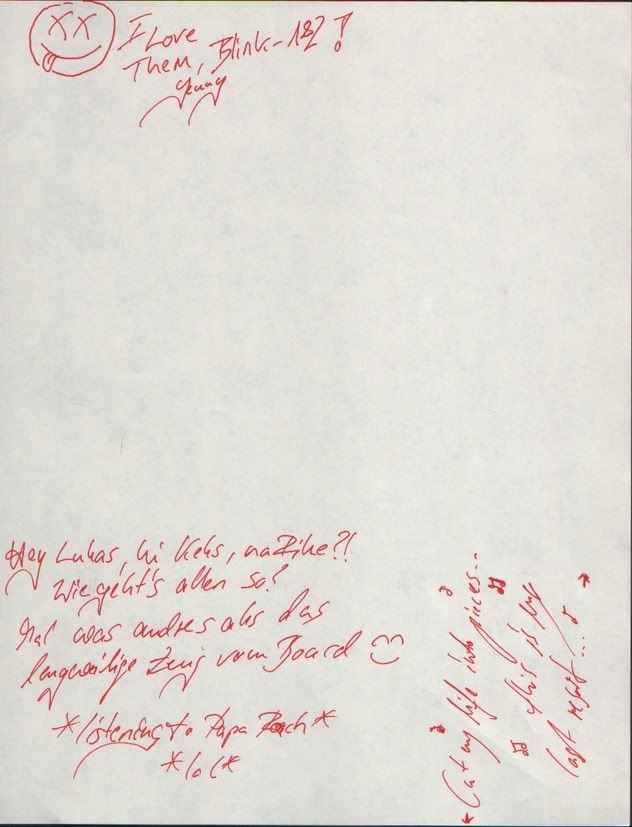 I Love
Them, Blink-182!
Hey Lukas, hi Keks, na Zike?!
Wie geht's allen so?
Mal was andres als das
langweilige Zeug vom Board
*listening to Papa Roach*
*lol*
*Cut my life into pieces...
this is my
last resort...